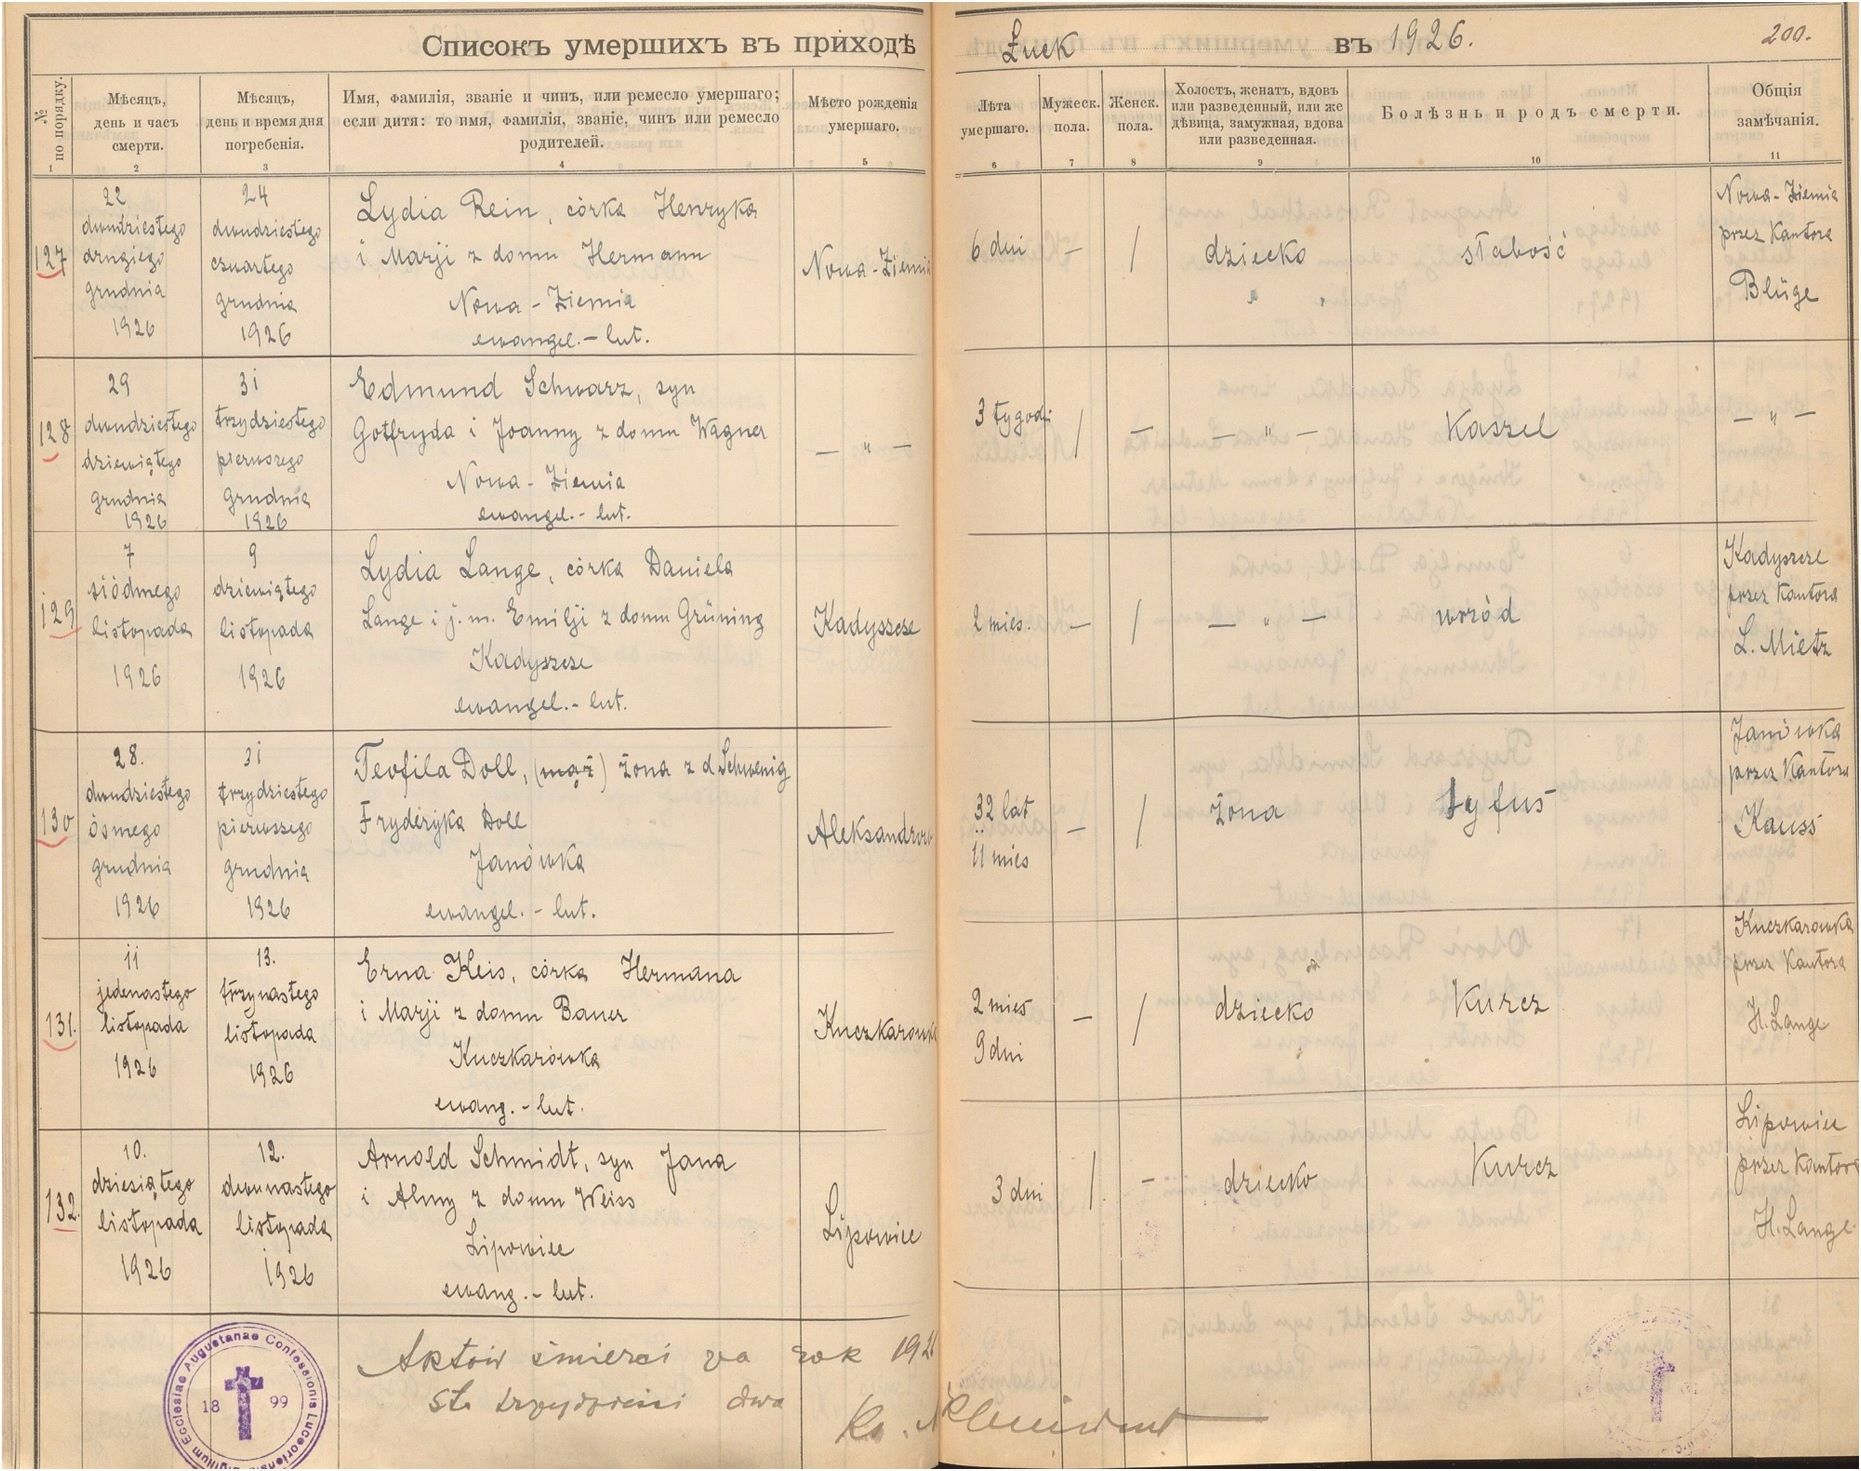 Списокъ умершихъ въ приходѣ Łuck въ 1926. 200.
№ по порядку.
Мѣсяцъ, день и часъ смерти.
Мѣсяцъ, день и время дня погребенія.
Имя, фамилія, званіе и чинъ, или ремесло умершаго;
если дитя: то имя, фамилія, званіе, чинъ или ремесло
родителей.
Мѣсто рожденія
умершаго.
Лѣта
умершаго.
Мужеск.
пола.
Женск.
пола.
Холостъ, женатъ, вдовъ
или разведенный, или же
дѣвица, замужная, вдова
или разведенная.
Болѣзнь и родъ смерти.
Общія
замѣчанія.
1 2 3 4 5 6 7 8 9 10 11
127
22
dwudziestego
drugiego
grudnia
1926
24
dwudziestego
czwartego
grudnia
1926
Lydia Rein, córka Henryka
i Marji z domu Hermann
Nowa-Ziemia
ewangel.-lut.
Nowa-Ziemia
6 dni
—
/
dziecko
słabość
Nowa-Ziemia
przez Kantora
Blüge
128
29
dwudziestego
dziewiątego
grudnia
1926
31
trzydziestego
pierwszego
grudnia
1926
Edmund Schwarz, syn
Gotfryda i Joanny z domu Wagner
Nowa-Ziemia
ewangel.-lut.
— " —
3 tygod:
/
—
— " —
Kaszel
— " —
129
7
siódmego
listopada
1926
9
dziewiątego
listopada
1926
Lydia Lange, córka Daniela
Lange i j. m. Emilji z domu Grüning
Kadyszcze
ewangel.-lut.
Kadyszcze
2 mies.
—
/
— " —
wrzód
Kadyszcze
przez Kantora
L. Mietz
130
28.
dwudziestego
ósmego
grudnia
1926
31
trzydziestego
pierwszego
grudnia
1926
Teofila Doll, (mąż) żona z d. Schwenig
Fryderyka Doll
Janówka
ewangel.-lut.
32 lat
11 mies
—
/
żona
tyfus
Janówka
przez Kantora
Kauss
131.
11
jedenastego
listopada
1926
13.
trzynastego
listopada
1926
Erna Kleis, córka Hermana
i Marji z domu Bauer
Kuczkarówka
ewang.-lut.
Kuczkarowka
2 mies
9 dni
—
/
dziecko
Kurcz
Kuczkarowka
przez Kantora
H. Lange
132.
10.
dziesiątego
listopada
1926
12.
dwunastego
listopada
1926
Arnold Schmidt, syn Jana
i Almy z domu Weiss
Lipowiec
ewang.-lut.
Lipowiec
3 dni
/
-
dziecko
Kurcz
Lipowiec
przez Kantora
H. Lange
Aktów śmierci za rok 192
sto trzydzieści dwa
Sigillum Ecclesiae Augustanae Confessionis Luceoriensis
18 99